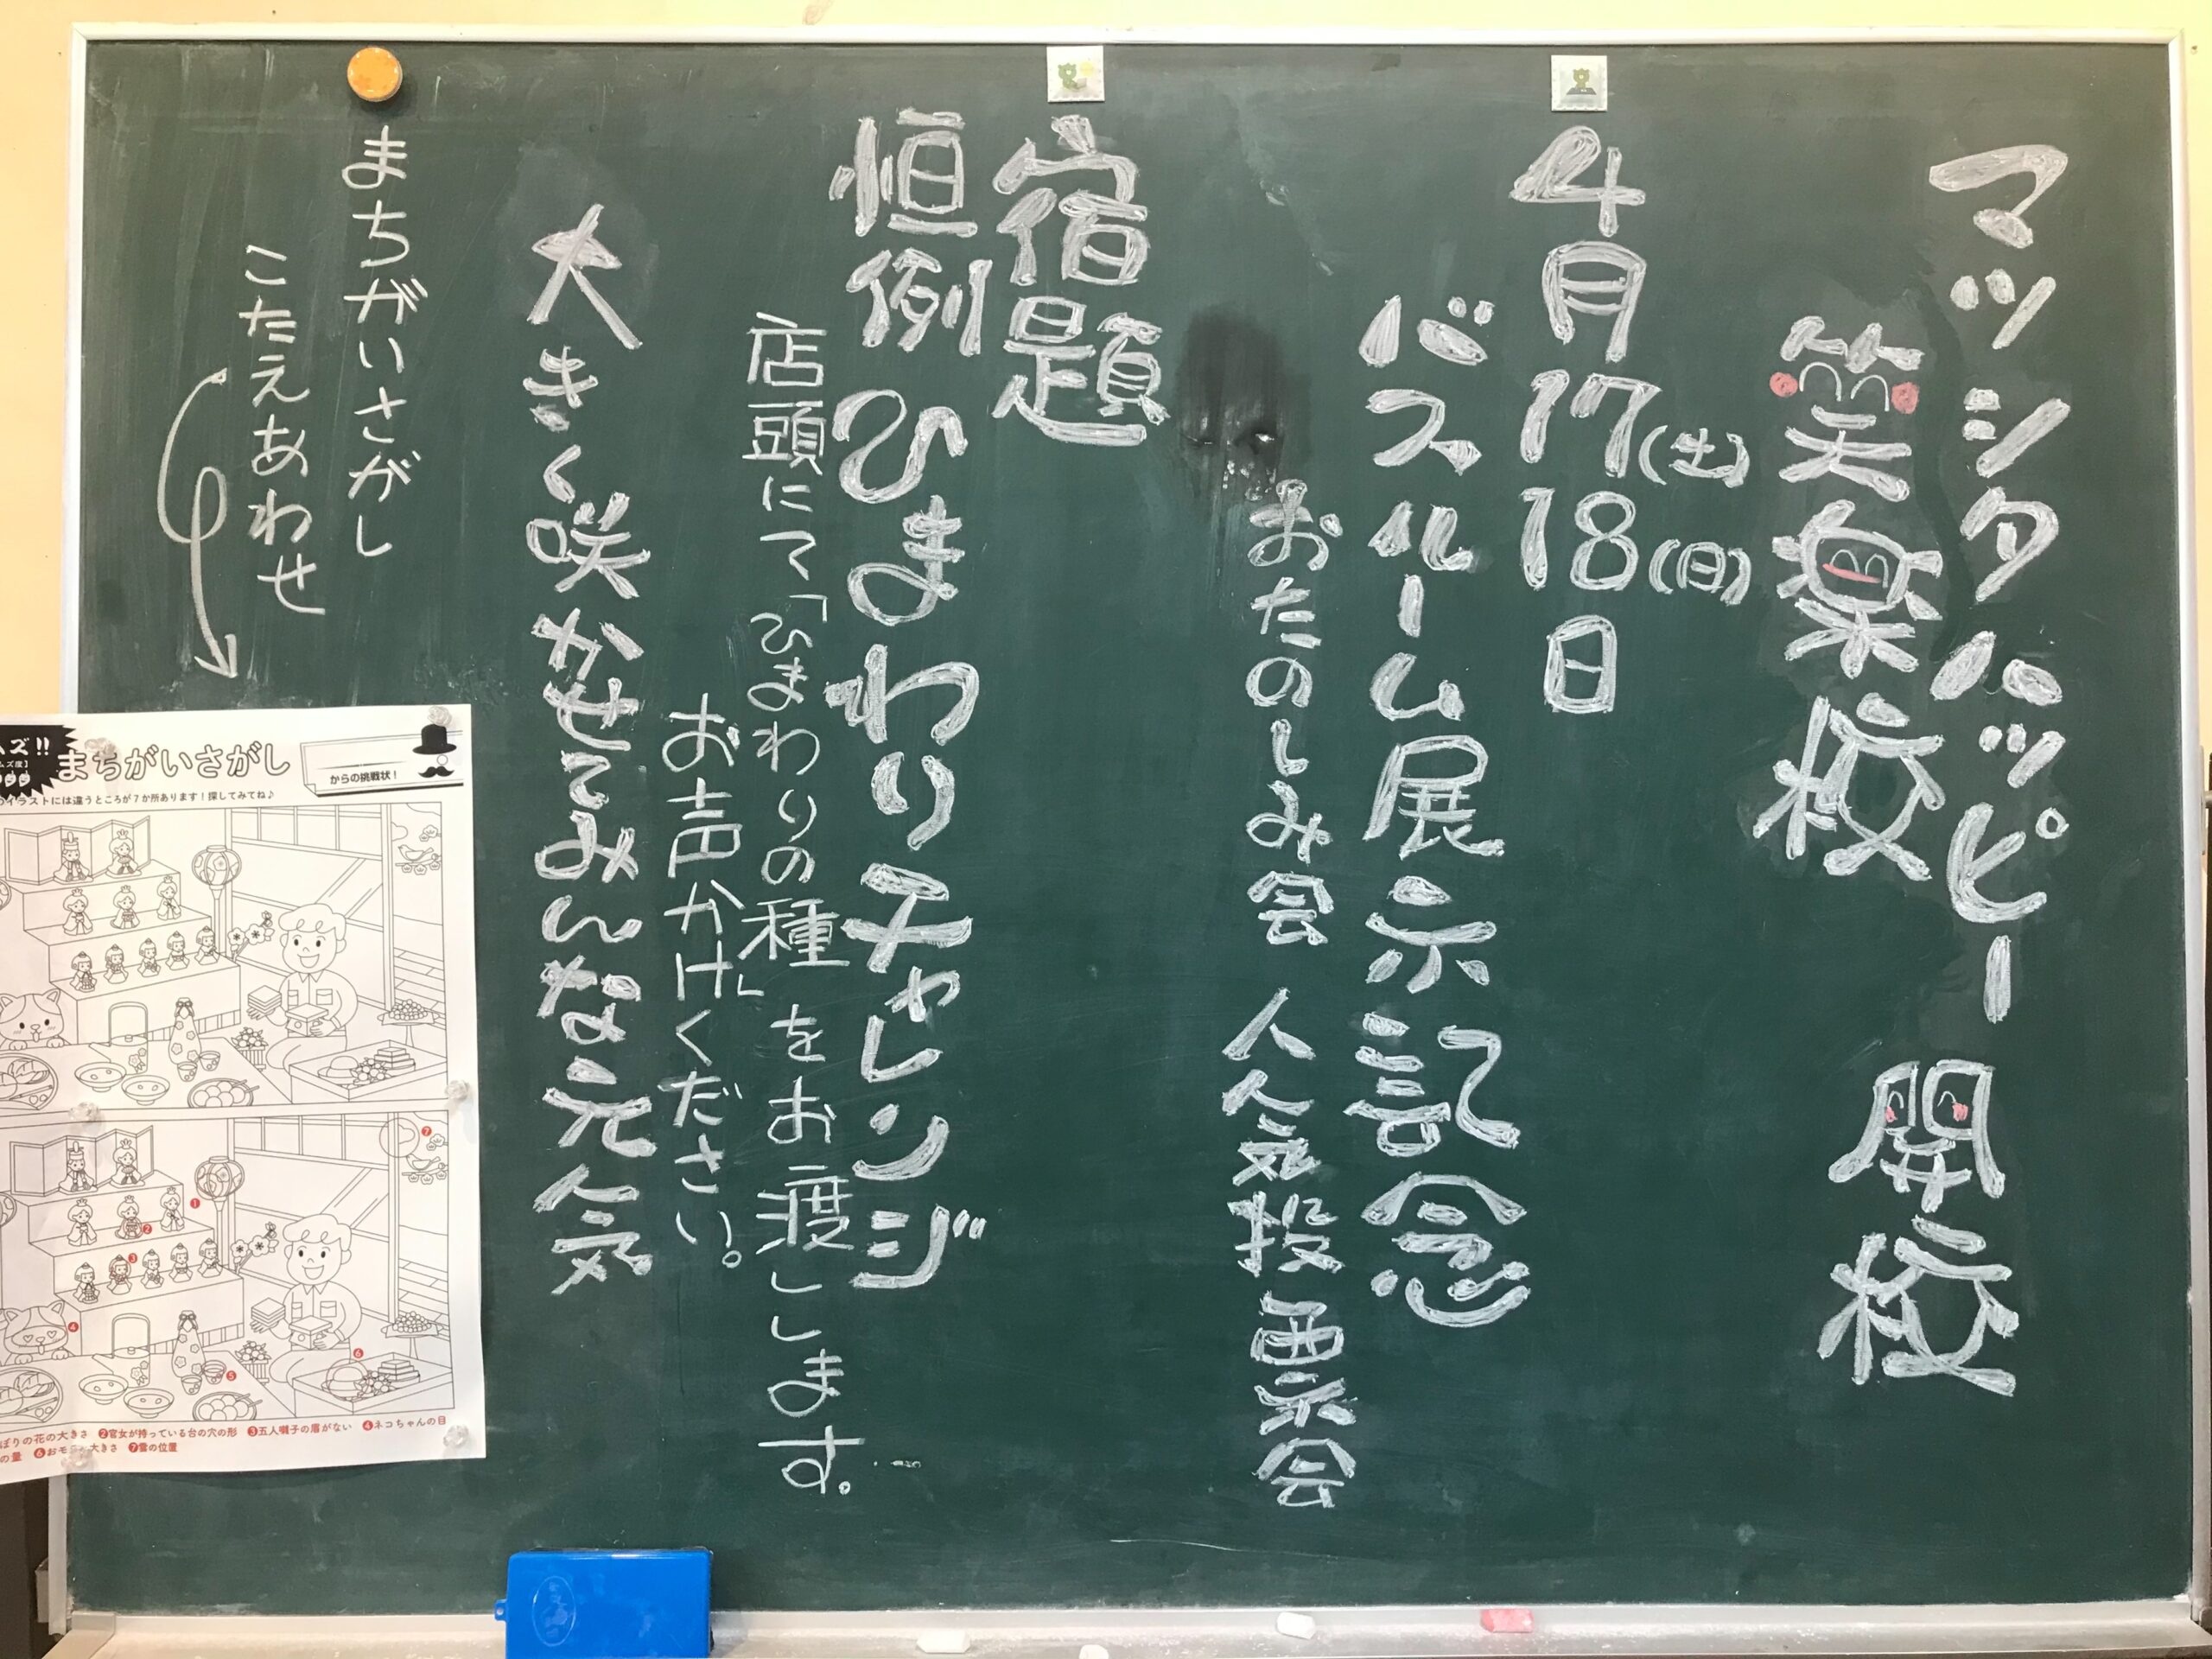 マッシタハッピー
笑楽校 開校
4月17(土)18(日)日
バスルーム展示記念
おたのしみ会 人気投票会
宿題
恒例ひまわりチャレンジ
店頭にて「ひまわりの種」をお渡しします。
お声かけください。
大きく咲かせてみんな元気
まちがいさがし
こたえあわせ
ズ!!
まちがいさがし
からの挑戦状!
イラストには違うところが7か所あります!探してみてね♪
7
1
2
3
4
6
5
ぼりの花の大きさ ❷官女が持っている台の穴の形 ❸五人囃子の眉がない ❹ネコちゃんの目
の量 ❻おモチの大きさ ❼雲の位置